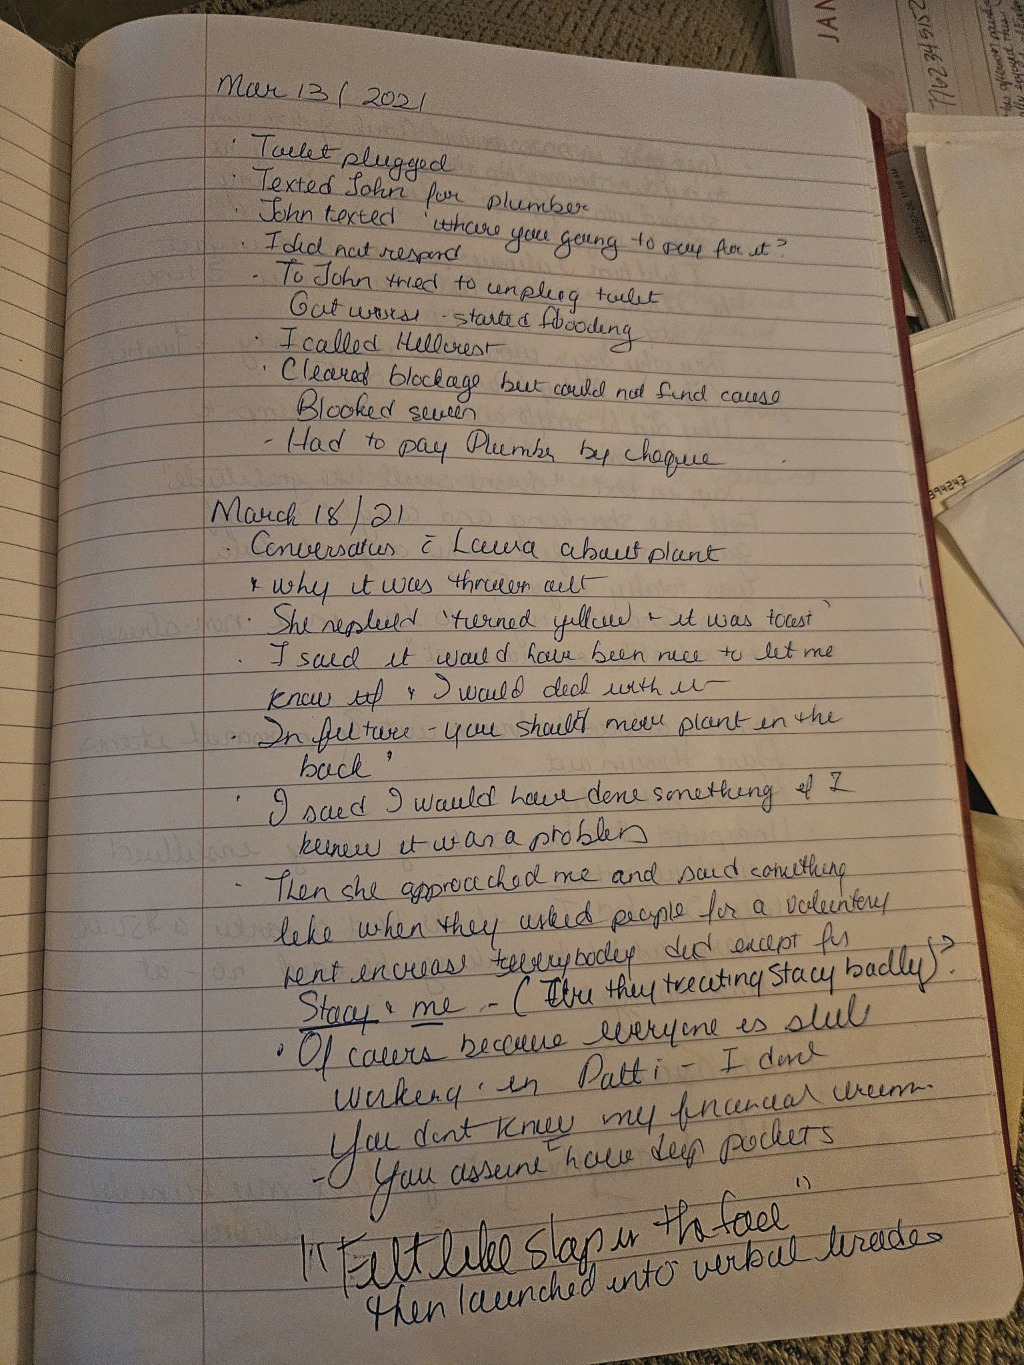 Mar 13 / 2021
· Toilet plugged
· Texted John for plumber
· John texted 'whare you going to pay for it?
· I did not respond
· To John tried to unplug toilet
Got worse - started flooding
· I called Hillcrest
· Cleared blockage but could not find cause
Blooked sewer
- Had to pay Plumber by cheque
March 18/21
· c̄ Laura about plant
* why it was thrown out
· She replied 'turned yellow + it was toast'
· I said it would have been nice to let me
know & I would deal with it
· In future - you should move plant in the
back'
· I said I would have done something if I
knew it was a problem
· Then she approached me and said something
like when they asked people for a voluntary
rent increase everybody did except for
Stacy & me - ( they treating Stacy badly)?
· Of because everyone is still
working. in Patti - I dont
You dont know my financial
- You assume I have deep pockets
"Felt like slap in the face"
then launched into verbal tirades
JAN
7762345152
394243